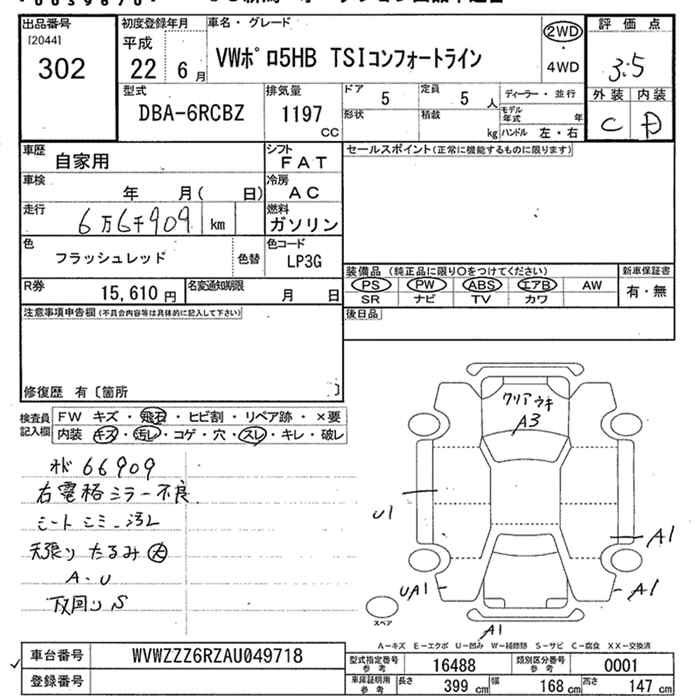 出品番号
[2044]
302
初度登録年月
平成
22 6 月
車名・グレード
VWポロ5HB TSIコンフォートライン
2WD
・
4WD
評価点
3.5
外装 内装
C D
型式
DBA-6RCBZ
排気量
1197
CC
ドア 5
定員 5 人
形状
積載 kg
ディーラー・並行
モデル年式 年
ハンドル 左・右
車歴
自家用
シフト
FAT
車検
年 月( 日)
冷房
AC
走行
6万6千909 km
燃料
ガソリン
色
フラッシュレッド
色替
色コード
LP3G
R券
15,610 円
名変通知期限
月 日
セールスポイント(正常に機能するものに限ります)
装備品 (純正品に限り○をつけてください)
PS PW ABS エアB AW
SR ナビ TV カワ
新車保証書
有・無
後日品
注意事項申告欄(不具合内容等は具体的に記入して下さい)
修復歴 有〔箇所 〕
検査員
記入欄
FW キズ・飛石・ヒビ割・リペア跡・×要
内装 キズ・汚レ・コゲ・穴・スレ・キレ・破レ
66909
右電格ミラー不良
天張りたるみ大
A.U
下回りS
クリアウキ
A3
U1
A1
UA1
A1
A1
スペア
A-キズ E-エクボ U-凹み W-補修跡 S-サビ C-腐食 XX-交換済
車台番号
WVWZZZ6RZAU049718
登録番号
型式指定番号
参考
16488
類別区分番号
参考
0001
車庫証明用
参考
長さ 399 cm
幅 168 cm
高さ 147 cm